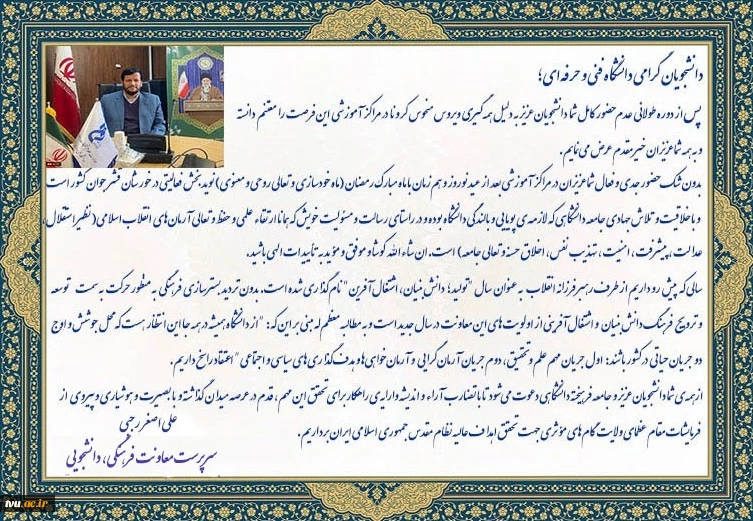 دانشجویان گرامی دانشگاه فنی و حرفه ای؛
پس از دوره طولانی عدم حضور کامل شما دانشجویان عزیز به دلیل همه گیری ویروس منحوس کرونا در مراکز آموزشی این فرصت را مغتنم دانسته
و به همه شما عزیزان خیر مقدم عرض می نمایم.
بدون شک حضور جدی و فعال شما عزیزان در مراکز آموزشی بعد از عید نوروز و هم زمان با ماه مبارک رمضان (ماه خودسازی و تعالی روحی و معنوی) نوید بخش فعالیتی در خور شان قشر جوان کشور است
و با خلاقیت و تلاش جهادی جامعه دانشگاهی که لازمه ی پویایی و بالندگی دانشگاه بوده و در راستای رسالت و مسئولیت خویش که همانا ارتقاء علمی و حفظ و تعالی آرمان های انقلاب اسلامی (نظیر استقلال،
عدالت، پیشرفت، امنیت، تهذیب نفس، اخلاق حسنه و تعالی جامعه) است. ان شاء الله کوشا و موفق و مؤید به تاییدات الهی باشید.
سالی که پیش رو داریم از طرف رهبر فرزانه انقلاب به عنوان سال "تولید؛ دانش بنیان، اشتغال آفرین" نام گذاری شده است. بدون تردید بسترسازی فرهنگی به منظور حرکت به سمت توسعه
و ترویج فرهنگ دانش بنیان و اشتغال آفرینی از اولویت های این معاونت در سال جدید است و به مطالبه معظم له مبنی بر این که: "از دانشگاه همیشه در همه جا این انتظار هست که محل جوشش و اوج
دو جریان حیاتی در کشور باشند: اول جریان مهم علم و تحقیق، دوم جریان آرمان گرایی و آرمان خواهی ها و هدف گذاری های سیاسی و اجتماعی" اعتقاد راسخ داریم.
از همه ی شما دانشجویان عزیز و جامعه فرهیخته دانشگاهی دعوت می شود تا با تضارب آراء و اندیشه و ارایه ی راهکار برای تحقق این مهم، قدم در عرصه میدان گذاشته و با بصیرت و هوشیاری و پیروی از
فرمایشات مقام عظمای ولایت گام های مؤثری جهت تحقق اهداف عالیه نظام مقدس جمهوری اسلامی ایران برداریم.
علی اصغر رجبی
سرپرست معاونت فرهنگی، دانشجویی
tvu.ac.ir